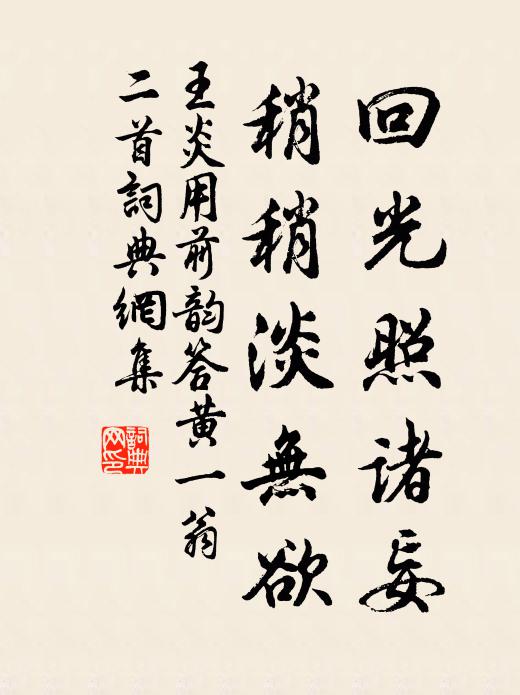 回光照诸妄
稍稍淡無欲
王炎用前韵答黄一翁
二首詞典網集
詞典
网印